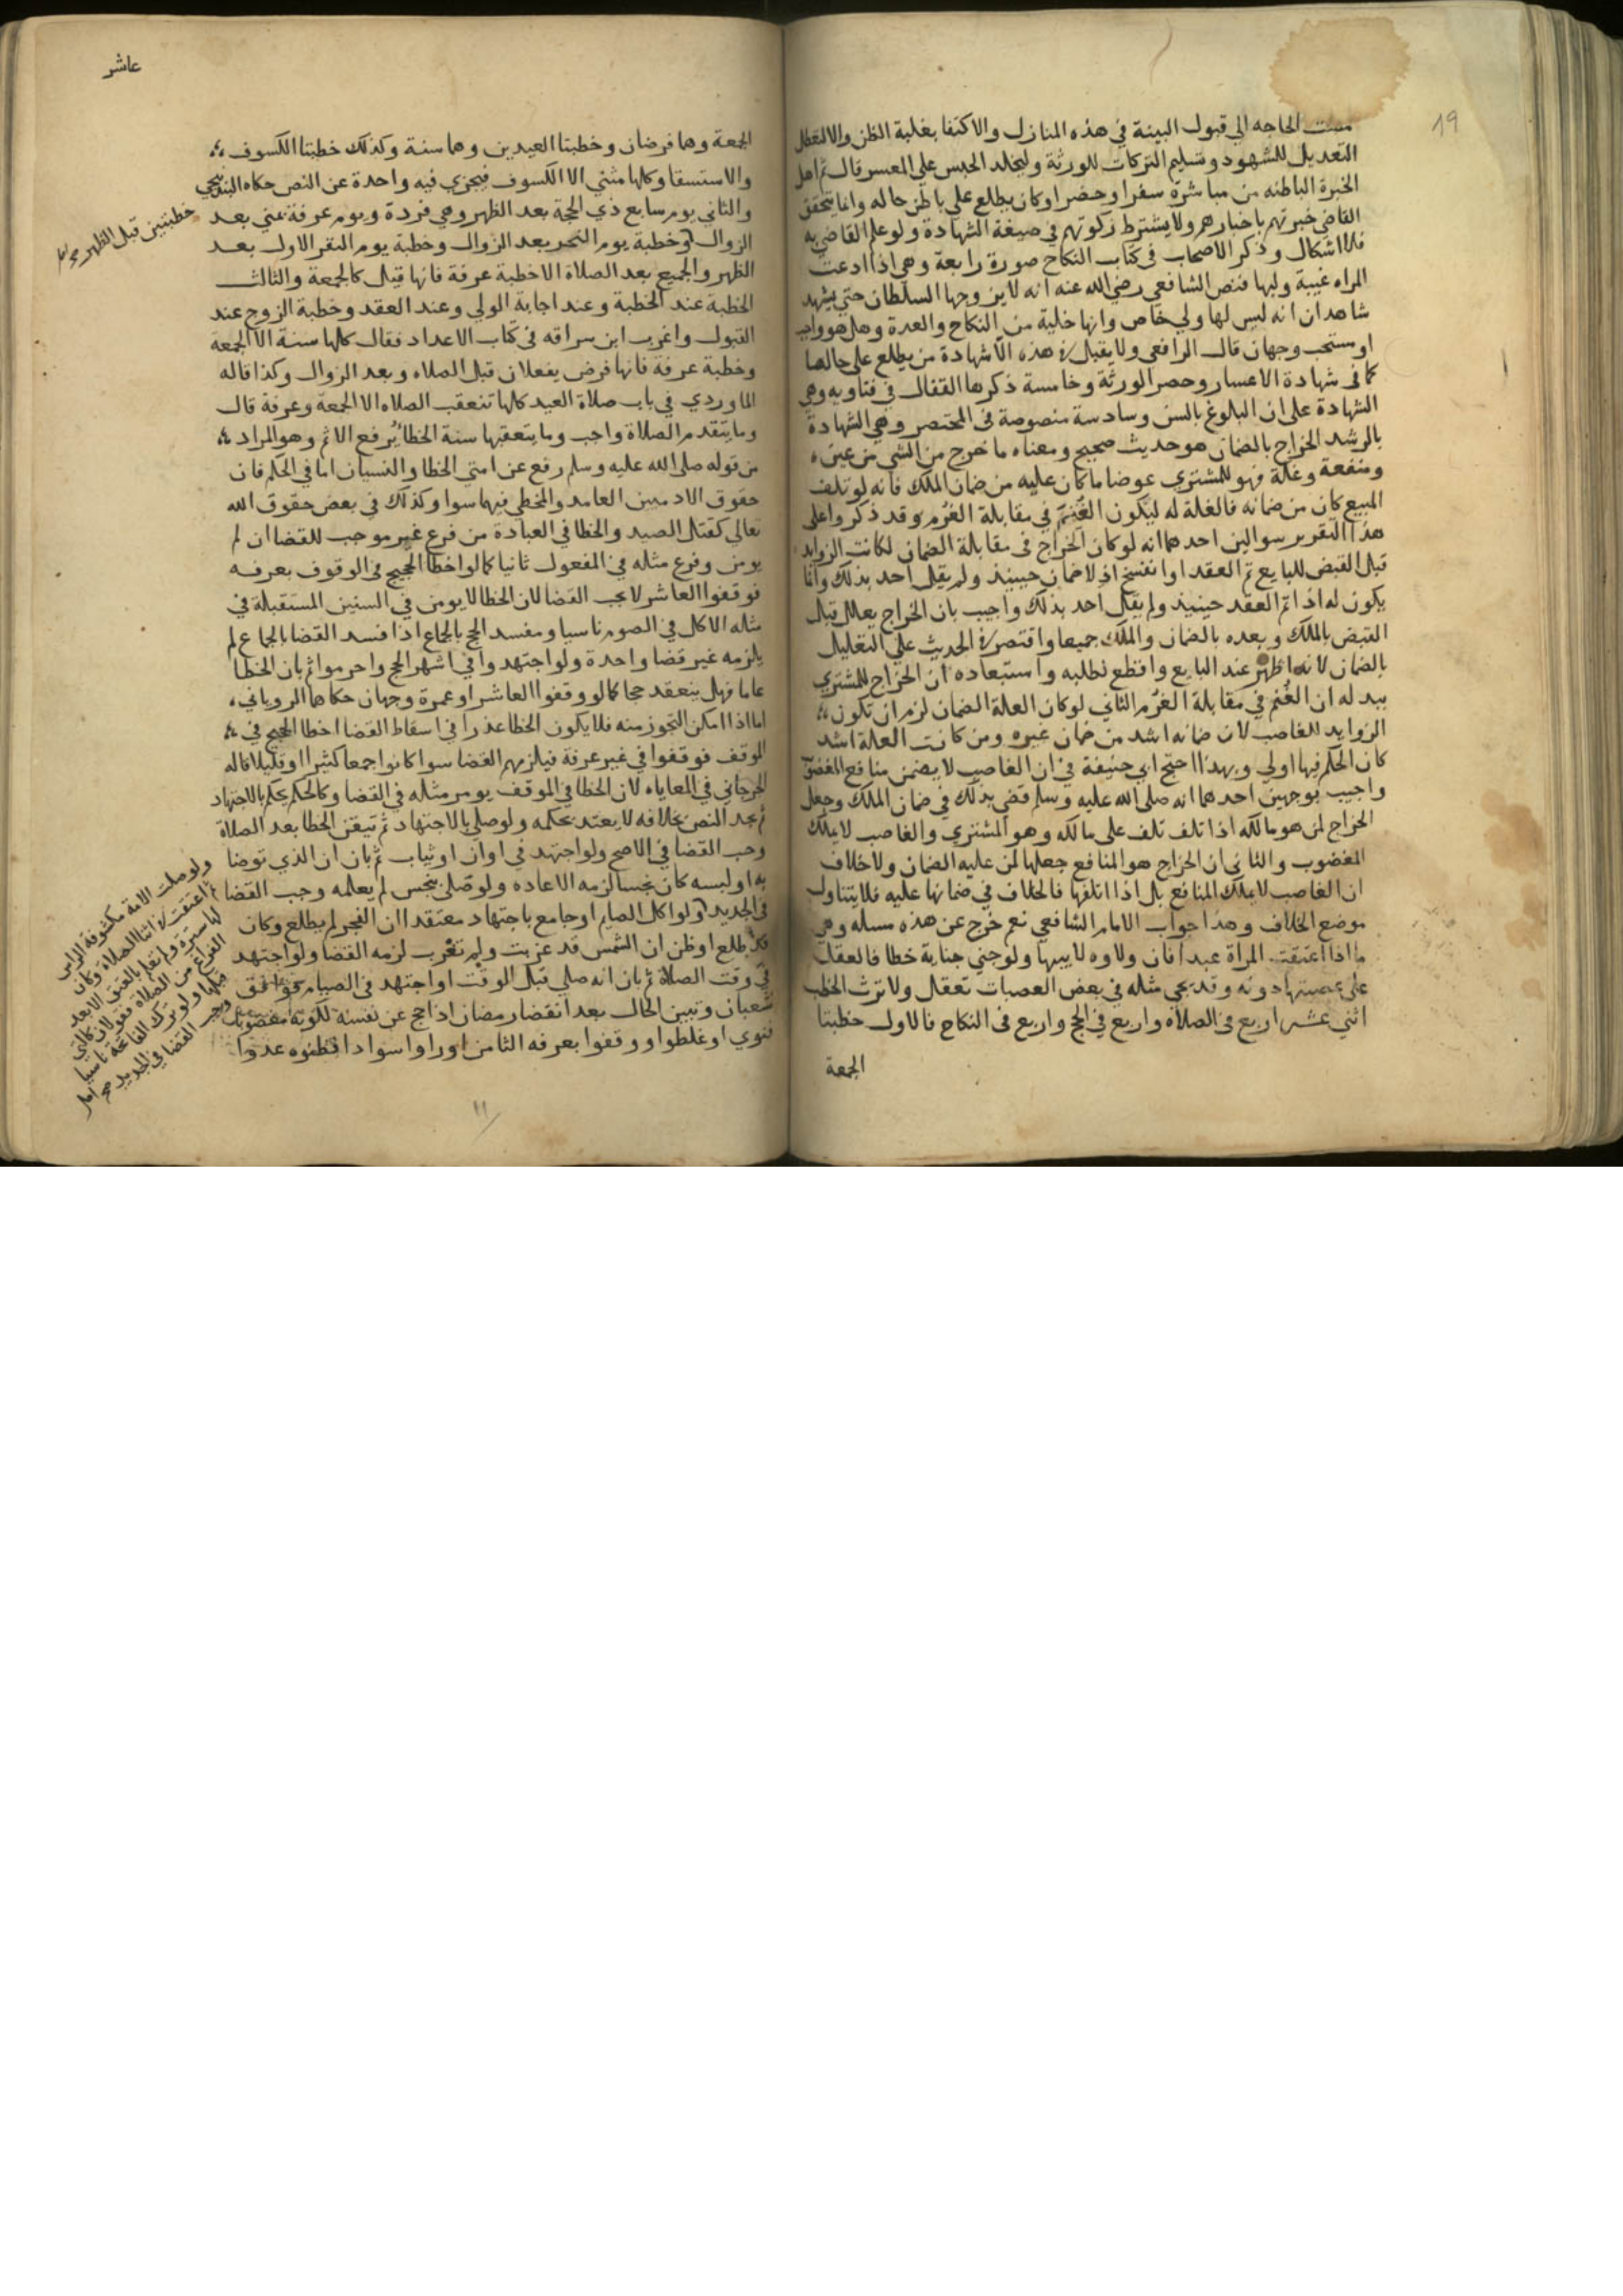 19
مست الحاجه الي قبول البينة في هذه المنازل والاكتفا بغلبة الظن والا لتعطل
التعديل للشهود وتسليم التركات للورثة وليخلد الحبس علي المعسر قال ثم اهل
الخبرة الباطنه من مباشرة سفرا وحضرا وكان يطلع علي باطن حاله وانما يتحقق
القاضي خبرتهم باخبارهم ولا يشترط ذكرتهم في صيغة الشهادة ولو علم القاضي به
فلا اشكال وذكر الاصحاب في كتاب النكاح صورة رابعة وهي اذا ادعت
المراه غيبة وليها فنص الشافعي رضي الله عنه انه لا يزوجها السلطان حتي يشهد
شاهدان انه ليس لها ولي خاص وانها خلية من النكاح والعدة وهل هو واجب
او مستحب وجهان قال الرافعي ولا يقبل في هذه الا شهادة من يطلع علي حالها
كما في شهادة الاعسار وحصر الورثة وخامسة ذكرها القفال في فتاويه وهي
الشهادة علي ان البلوغ بالسن وسادسة منصوصة في المختصر وهي الشهادة
بالرشد الخراج بالضمان هو حديث صحيح ومعناه ما خرج من الشي من عين
ومنفعة وغلة فهو للمشتري عوضا ما كان عليه من ضمان الملك فانه لو تلف
المبيع كان من ضمانه فالغلة له ليكون الغنم في مقابلة الغرم وقد ذكروا علي
هذا التقرير سوالين احدهما انه لو كان الخراج في مقابلة الضمان لكانت الزوايد
قبل القبض للبايع تم العقد او انفسخ اذ لا ضمان حينيذ ولم يقل احد بذلك وانما
يكون له اذا تم العقد حينيذ ولم يقل احد بذلك واجيب بان الخراج يعلل قبل
القبض بالملك وبعده بالضمان والملك جميعا واقتصر في الحديث علي التعليل
بالضمان لانه اظهر عند البايع واقطع لطلبه واستبعاده ان الخراج للمشتري
يبد له ان الغنم في مقابلة الغرم الثاني لو كان العلة الضمان لزم ان تكون
الزوايد للغاصب لان ضمانه اشد من ضمان غيره ومن كانت العلة اشد
كان الحكم فيها اولي وبهذا احتج ابي حنيفة في ان الغاصب لا يضمن منافع المغصوب
واجيب بوجهين احدهما انه صلي الله عليه وسلم قضي بذلك في ضمان الملك وجعل
الخراج لمن هو مالكه اذا تلف تلف علي مالكه وهو المشتري والغاصب لا يملك
المغصوب والثاني ان الخراج هو المنافع جعلها لمن عليه الضمان ولا خلاف
ان الغاصب لا يملك المنافع بل اذا اتلفها فالخلاف في ضمانها عليه فلا يتناول
موضع الخلاف وهذا جواب الامام الشافعي نعم خرج عن هذه مسله وهي
ما اذا اعتقت المراة عبدا فان ولاوه لابيها ولو جني جناية خطا فالعقل
علي عصبتها دونه وقد يجي مثله في بعض العصبات تعقل ولا ترث الخطب
اثني عشر اربع في الصلاه واربع في الحج واربع في النكاح فالاول خطبتا
الجمعة
عاشر
الجمعة وهما فرضان وخطبتا العيدين وهما سنة وكذلك خطبتا الكسوف
والاستسقا وكلها مثني الا الكسوف فيجزي فيه واحدة عن النص حكاه البندنيجي
والثاني يوم سابع ذي الحجة بعد الظهر وهي فردة ويوم عرفة بمني بعد
الزوال وخطبة يوم النحر بعد الزوال وخطبة يوم النفر الاول بعد
خطبتين قبل الظهر صح
الظهر والجميع بعد الصلاة الا خطبة عرفة فانها قبل كالجمعة والثالث
الخطبة عند الخطبة وعند اجابة الولي وعند العقد وخطبة الزوج عند
القبول واغرب ابن سراقه في كتاب الاعداد فقال كلها سنة الا الجمعة
وخطبة عرفة فانها فرض يفعلان قبل الصلاه وبعد الزوال وكذا قاله
الماوردي في باب صلاة العيد كلها تتعقب الصلاه الا الجمعة وعرفة قال
وما يتقدم الصلاة واجب وما يتعقبها سنة الخطا يرفع الاثم وهو المراد
من قوله صلي الله عليه وسلم رفع عن امتي الخطا والنسيان اما في الحكم فان
حقوق الادميين العامد والمخطي فيها سوا وكذلك في بعض حقوق الله
تعالي كقتل الصيد والخطا في العبادة من فرع غير موجب للقضا ان لم
يومن وقوع مثله في المفعول ثانيا كما لو اخطا الحجيج في الوقوف بعرفه
فوقفوا العاشر لا يجب القضا لان الخطا لا يومن في السنين المستقبلة في
مثله الاكل في الصوم ناسيا ومفسد الحج بالجماع اذا فسد القضا بالجماع لم
يلزمه غير قضا واحدة ولو اجتهدوا في اشهر الحج واحرموا ثم بان الخطا
عاما فهل ينعقد حجا كما لو وقفوا العاشر او عمرة وجهان حكاهما الروياني
اما اذا امكن التحوز منه فلا يكون الخطا عذرا في اسقاط القضا اخطا الحجيج في
الموقف فوقفوا في غير عرفة فيلزمهم القضا سوا كانوا جمعا كثيرا او قليلا قاله
الجرجاني في المعاياه لان الخطا في الموقف يومن مثله في القضا وكالحكم يحكم بالاجتهاد
ثم يجد النص بخلافه لا يعتد بحكمه ولو صلي بالاجتهاد ثم تيقن الخطا بعد الصلاة
وجب القضا في الاصح ولو اجتهد في اوان او ثياب ثم بان ان الذي توضا
به او لبسه كان نجسا لزمه الاعاده ولو صلي بنجس لم يعلمه وجب القضا
في الجديد ولو اكل الصايم او جامع باجتهاد معتقدا ان الفجر لم يطلع وكان
قد طلع او ظن ان الشمس قد غربت ولم تغرب لزمه القضا ولو اجتهد
في وقت الصلاة ثم بان انه صلي قبل الوقت او اجتهد في الصيام فوافق
شعبان وتبين الحال بعد انقضا رمضان اذا حج عن نفسه لكونه معضوبا
فنوي او غلطوا ووقفوا بعرفه الثامن او راوا سوادا فظنوه عدوا
ولو صلت الامة مكشوفة الراس
ثم اعتقت في اثنا الصلاة وكان
لها سترة ولم تعلم بالعتق الا بعد
الفراغ من الصلاة فقولان كالتي
قبلها ولو ترك الفاتحة ناسيا
وجب القضا في الجديد صح اصل
١١